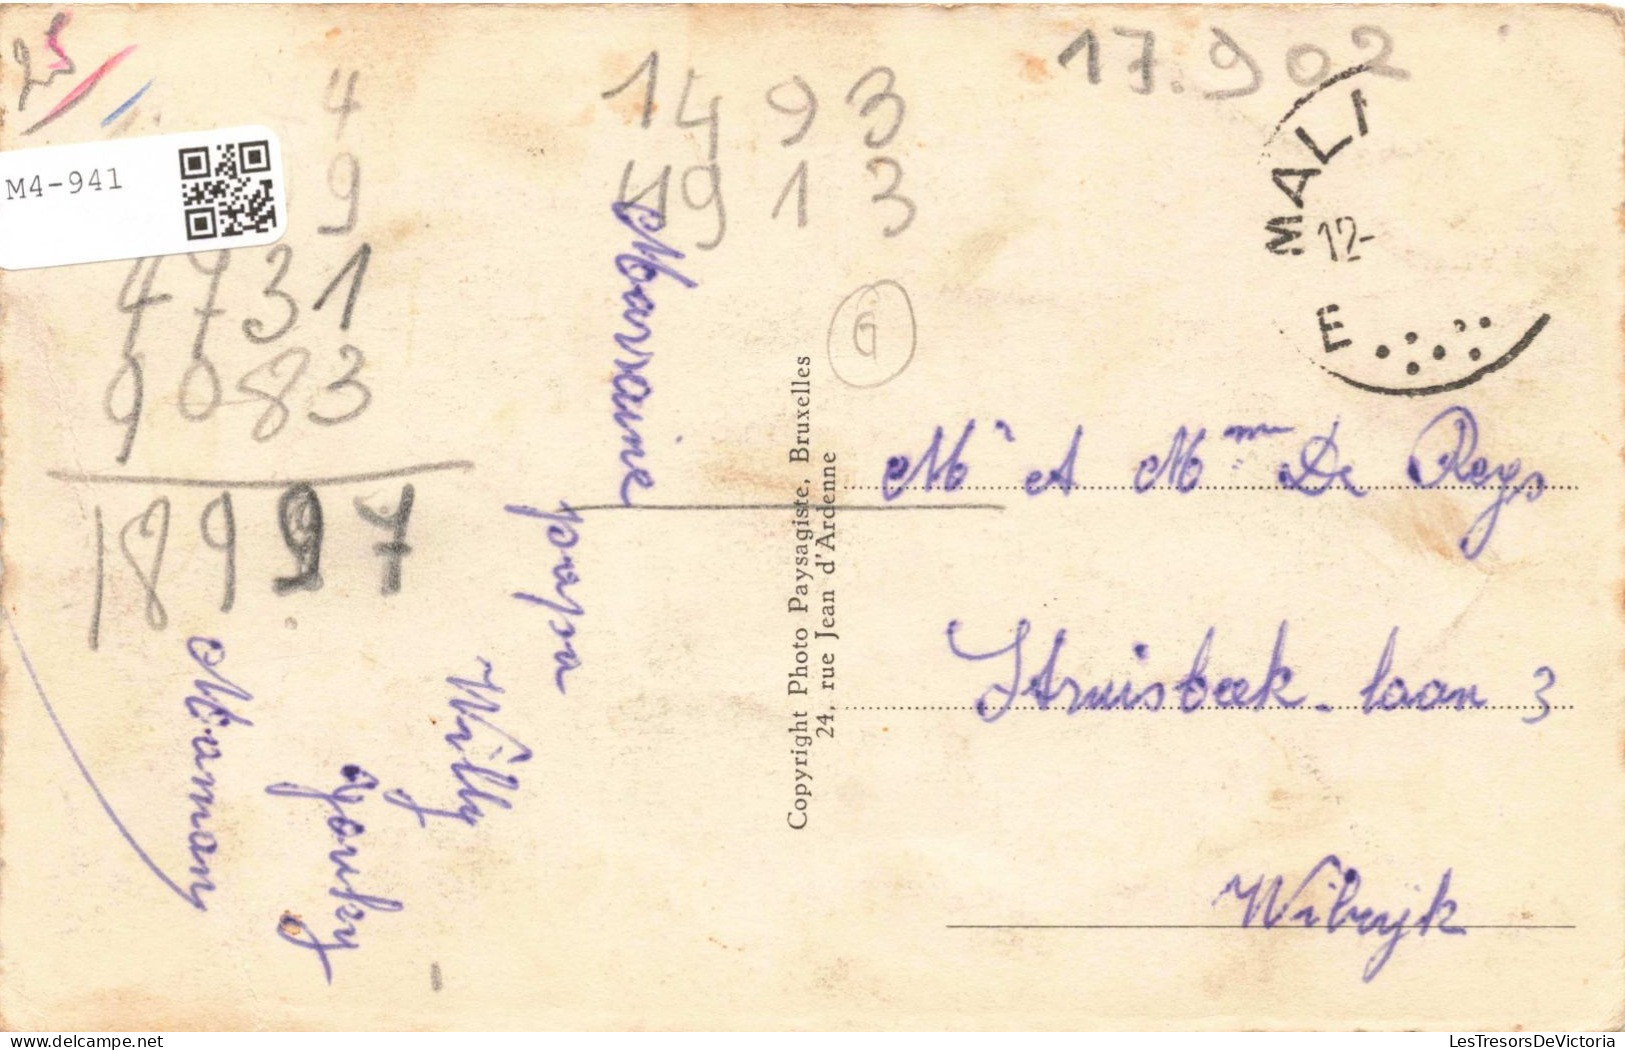 25
4
9
4731
9083
18997
1493
4913
17.902
M4-941
MALI
12-
E
Marraine
papa
Willy
Jouky
Maman
Copyright Photo Paysagiste, Bruxelles
24, rue Jean d'Ardenne
Mr et Mme De Reys
Struisbeek-laan 3
Wilryjk
LesTresorsDeVictoria
delcampe.net